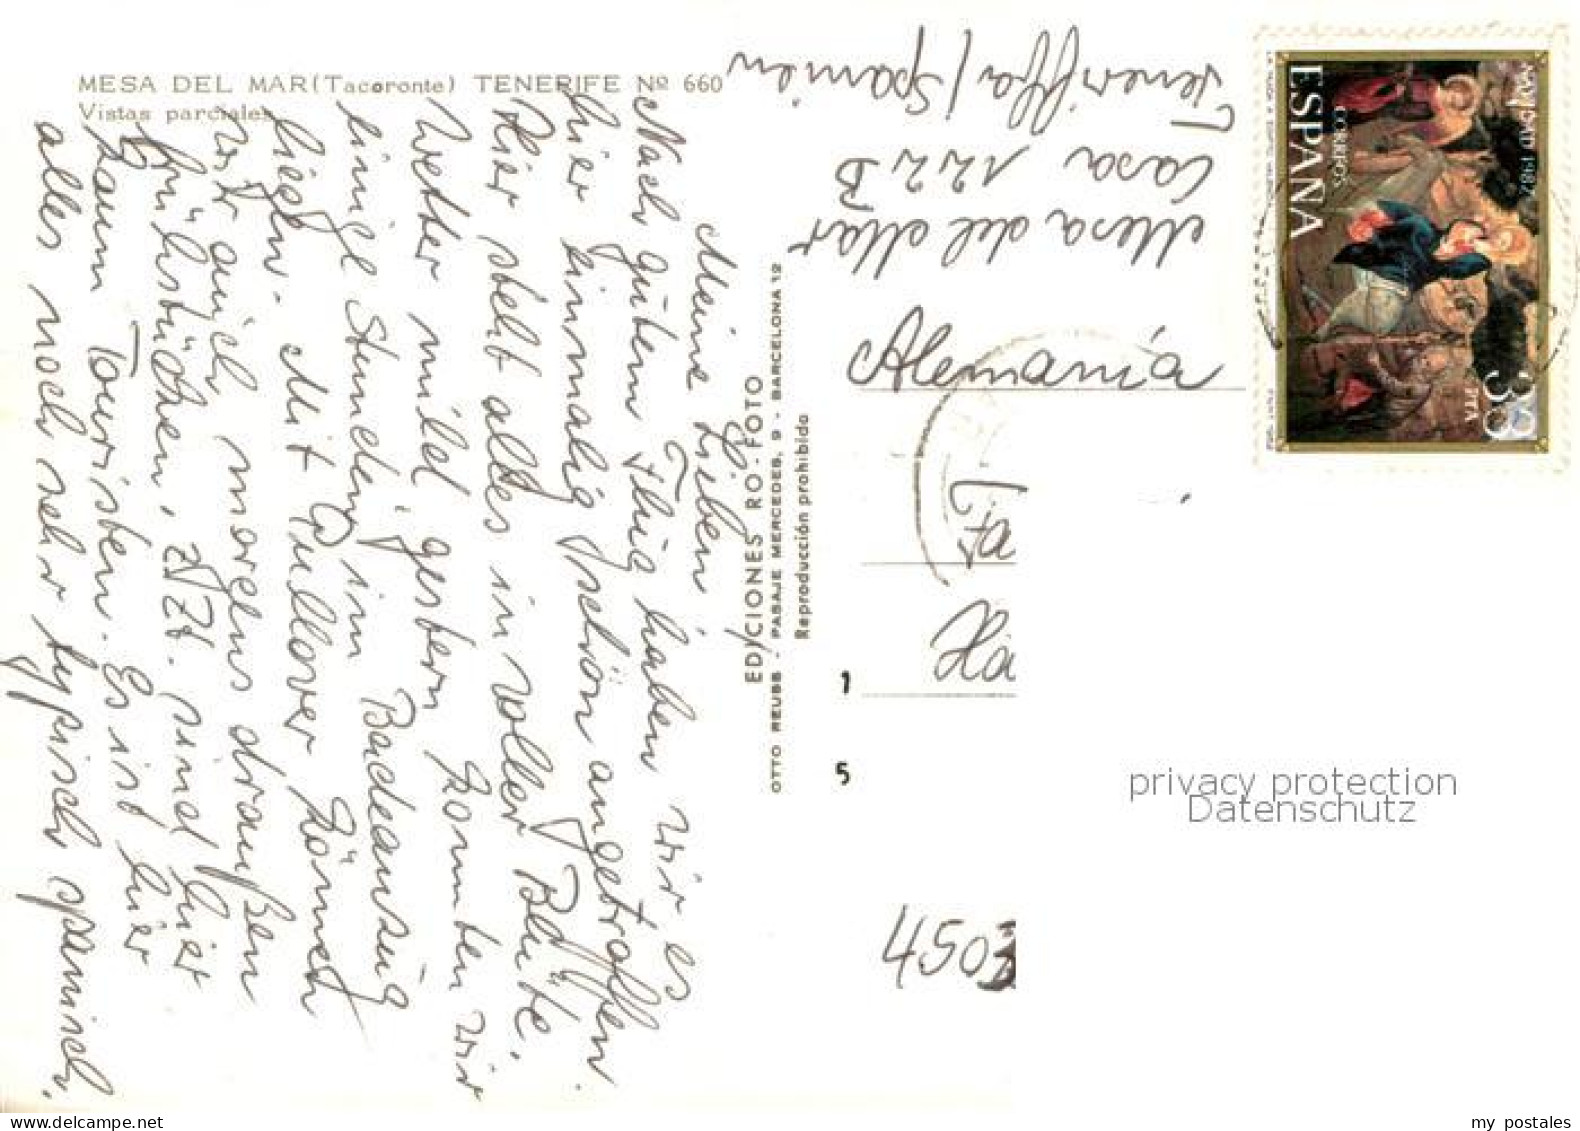 MESA DEL MAR (Tacoronte) TENERIFE Nº 660
Vistas parciales
Meine Lieben
Nach gutem Flug haben wir es
hier einmalig schön angetroffen.
Hier steht alles in voller Blüte.
Wetter mild, gestern konnten wir
einige Stunden im Badeanzug
liegen. Mit Pullover können
wir auch morgens draußen
frühstücken. ZZt. sind hier
kaum Touristen. Es ist hier
alles noch sehr typisch spanisch.
EDICIONES RO-FOTO
OTTO REUSS - PASAJE MERCEDES, 9 - BARCELONA 12
Reproducción prohibida
Mesa del Mar
Casa 122 B
Teneriffa / Spanien
NAVIDAD 1982
CORREOS
ESPAÑA
38
PTA
Alemania
1
5
4503
privacy protection
Datenschutz
my postales